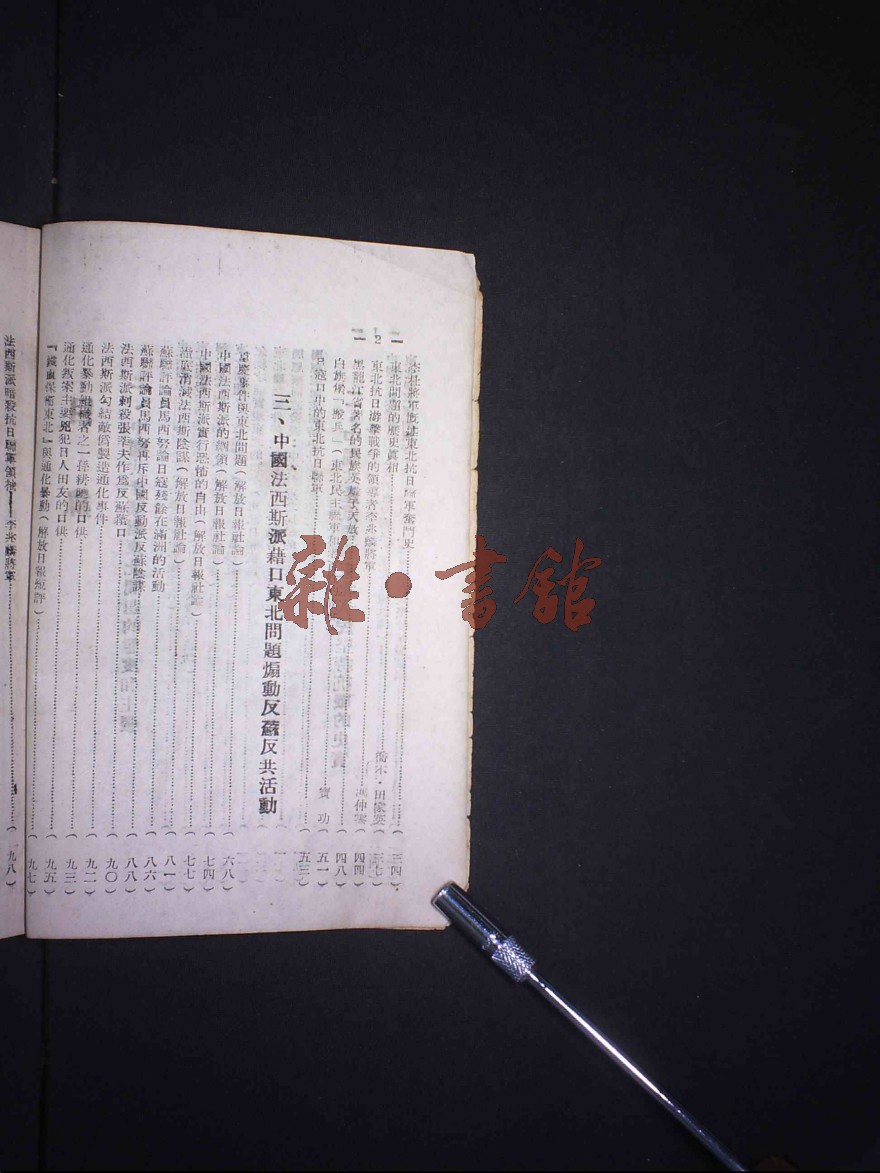 2
李兆麟將軍縱談東北抗日聯軍奮鬥史……(三四)
東北問題的歷史眞相……喬木·田家英(三七)
東北抗日游擊戰爭的領導者李兆麟將軍……仲雲(四四)
黑龍江省著名的民族英雄于天放……(四八)
(東北民主聯軍……寶功(五一)
日寇口中的東北抗日聯軍……(五三)
三、中國法西斯派藉口東北問題煽動反蘇反共活動
東北問題(解放日報社論)……(六八)
中國法西斯派的綱領(解放日報社論)……(七四)
中國法西斯派實行恐怖的自由(解放日報社論)……(七七)
消滅法西斯陰謀……(八一)
蘇聯評論員馬西努論日寇殘餘在滿洲的活動……(八六)
蘇聯評論員馬西努再斥中國反動派反蘇陰謀……(八八)
法西斯派刺殺張莘夫作爲反蘇藉口……(九〇)
法西斯派勾結敵僞製造通化事件……(九二)
通化暴動組織者之一孫耕曉的口供……(九三)
通化叛案主要兇犯日人田友的口供……(九五)
『鐵血保衛東北』與通化暴動(解放日報短評)……(九七)
法西斯派暗殺抗日聯軍領袖——李兆麟將軍……(一九八)
雜·書館